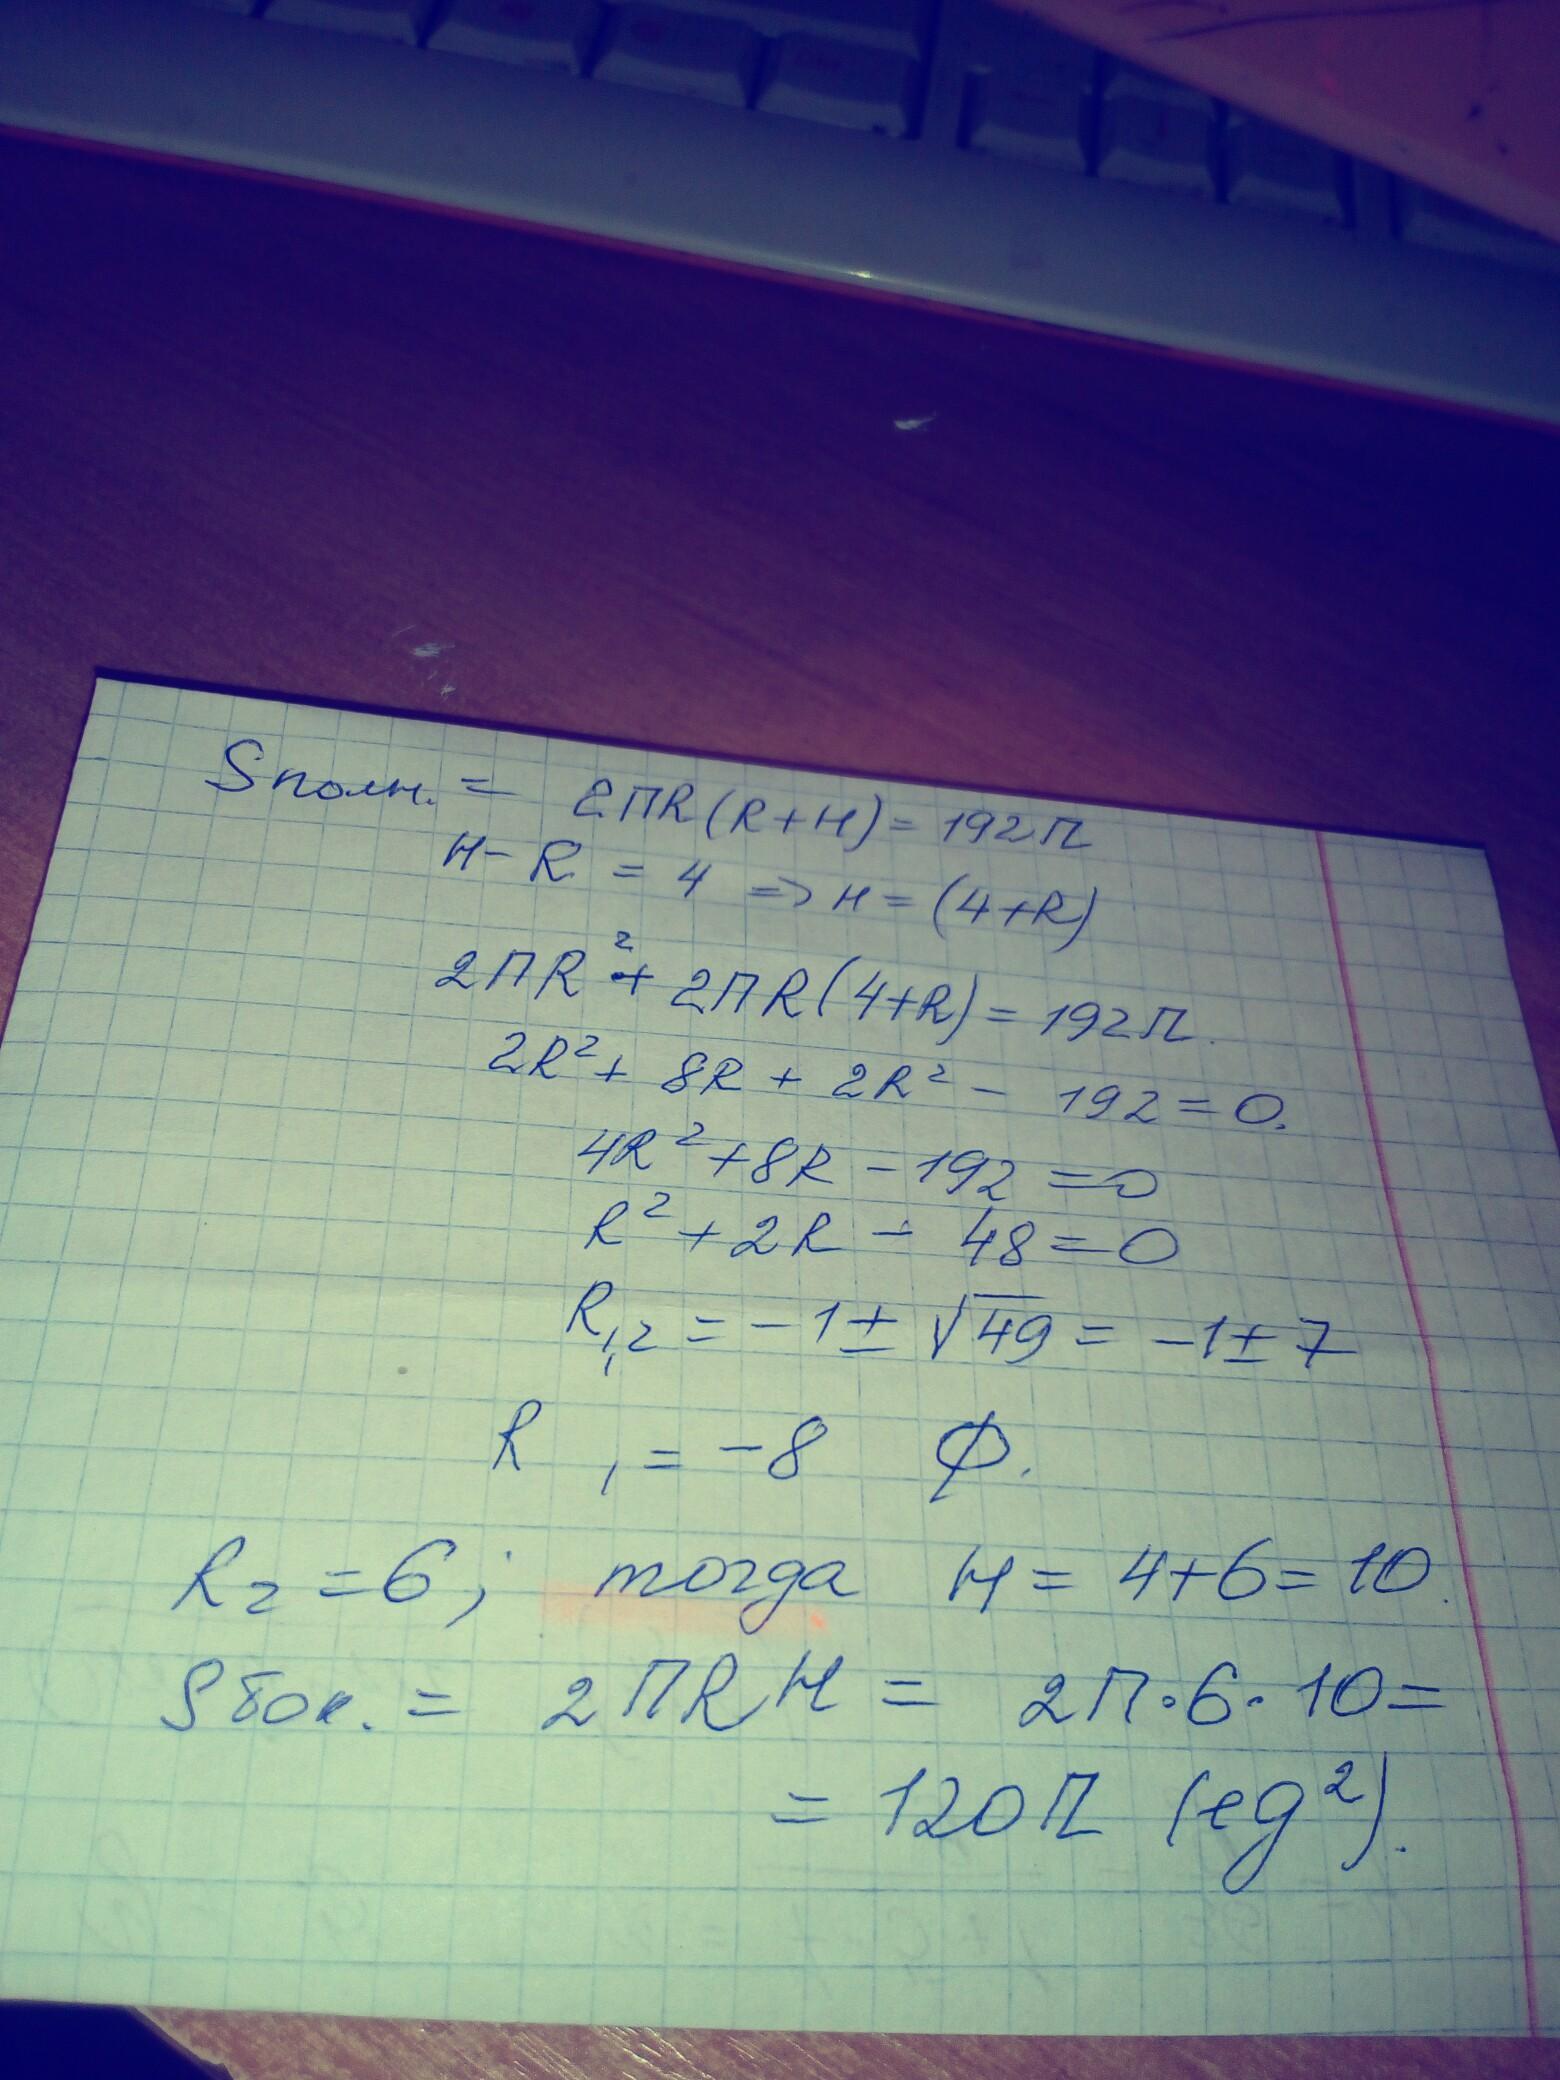 Sполн. = 2ПR(R+H) = 192П
H - R = 4 => H = (4+R)
2ПR² + 2ПR(4+R) = 192П.
2R² + 8R + 2R² - 192 = 0.
4R² + 8R - 192 = 0
R² + 2R - 48 = 0
R₁,₂ = -1 ± √49 = -1 ± 7
R₁ = -8 ∅.
R₂ = 6; тогда H = 4+6 = 10.
Sбок. = 2ПRH = 2П·6·10 =
= 120П (ед²).